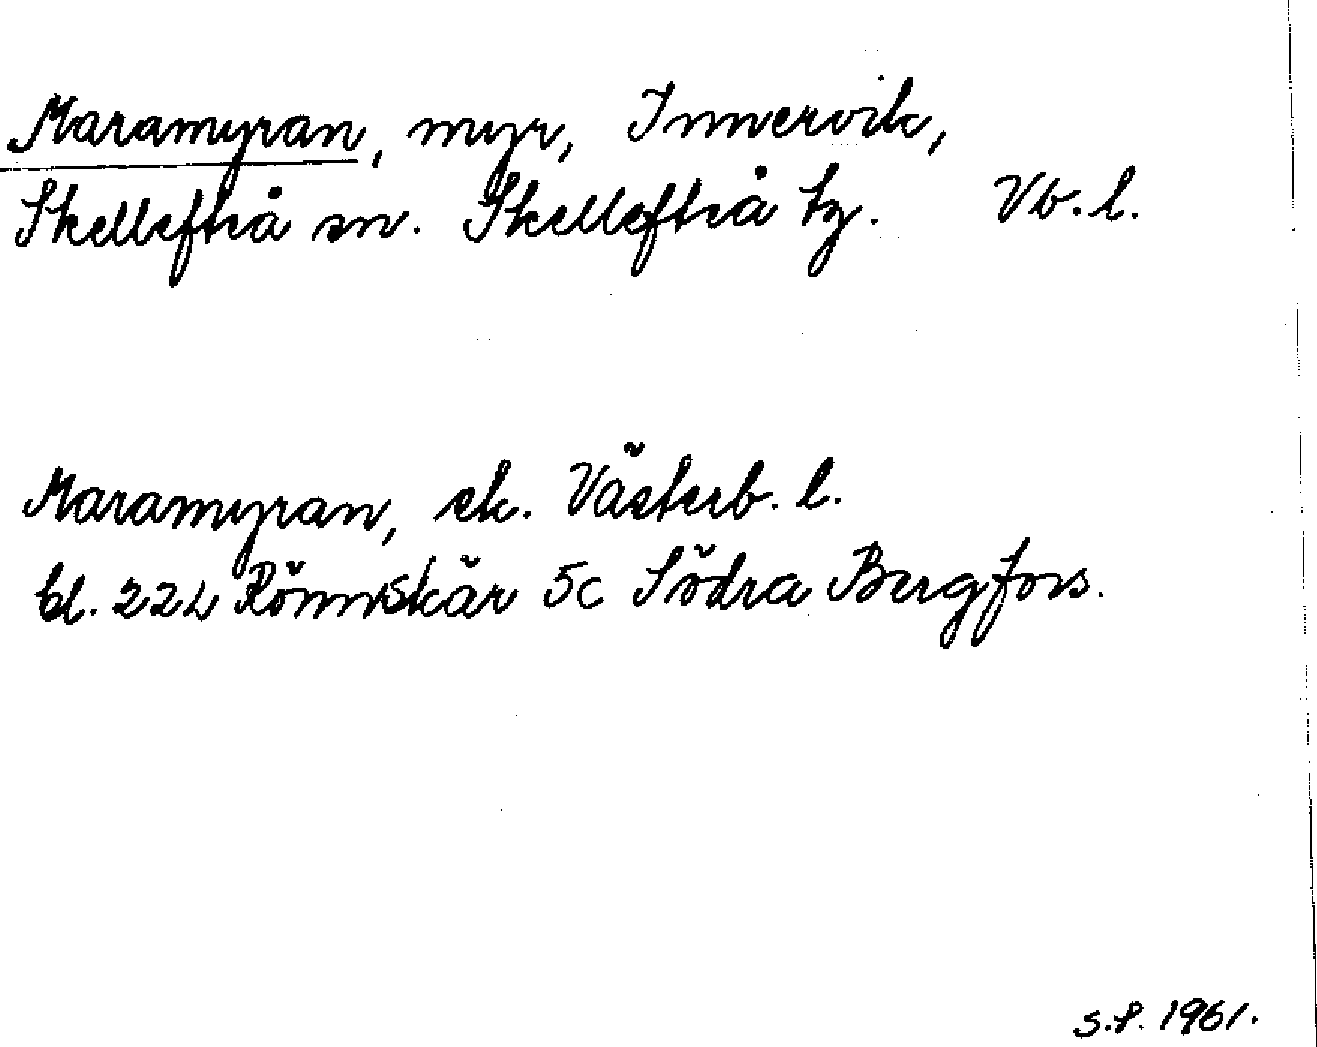 Maramyran, myr, Innervik,
Skellefteå sn. Skellefteå tg. Vb. l.
Maramyran, ek. Västerb. l.
bl. 22L Rönnskär 5c Södra Bergfors.
S.P. 1961.